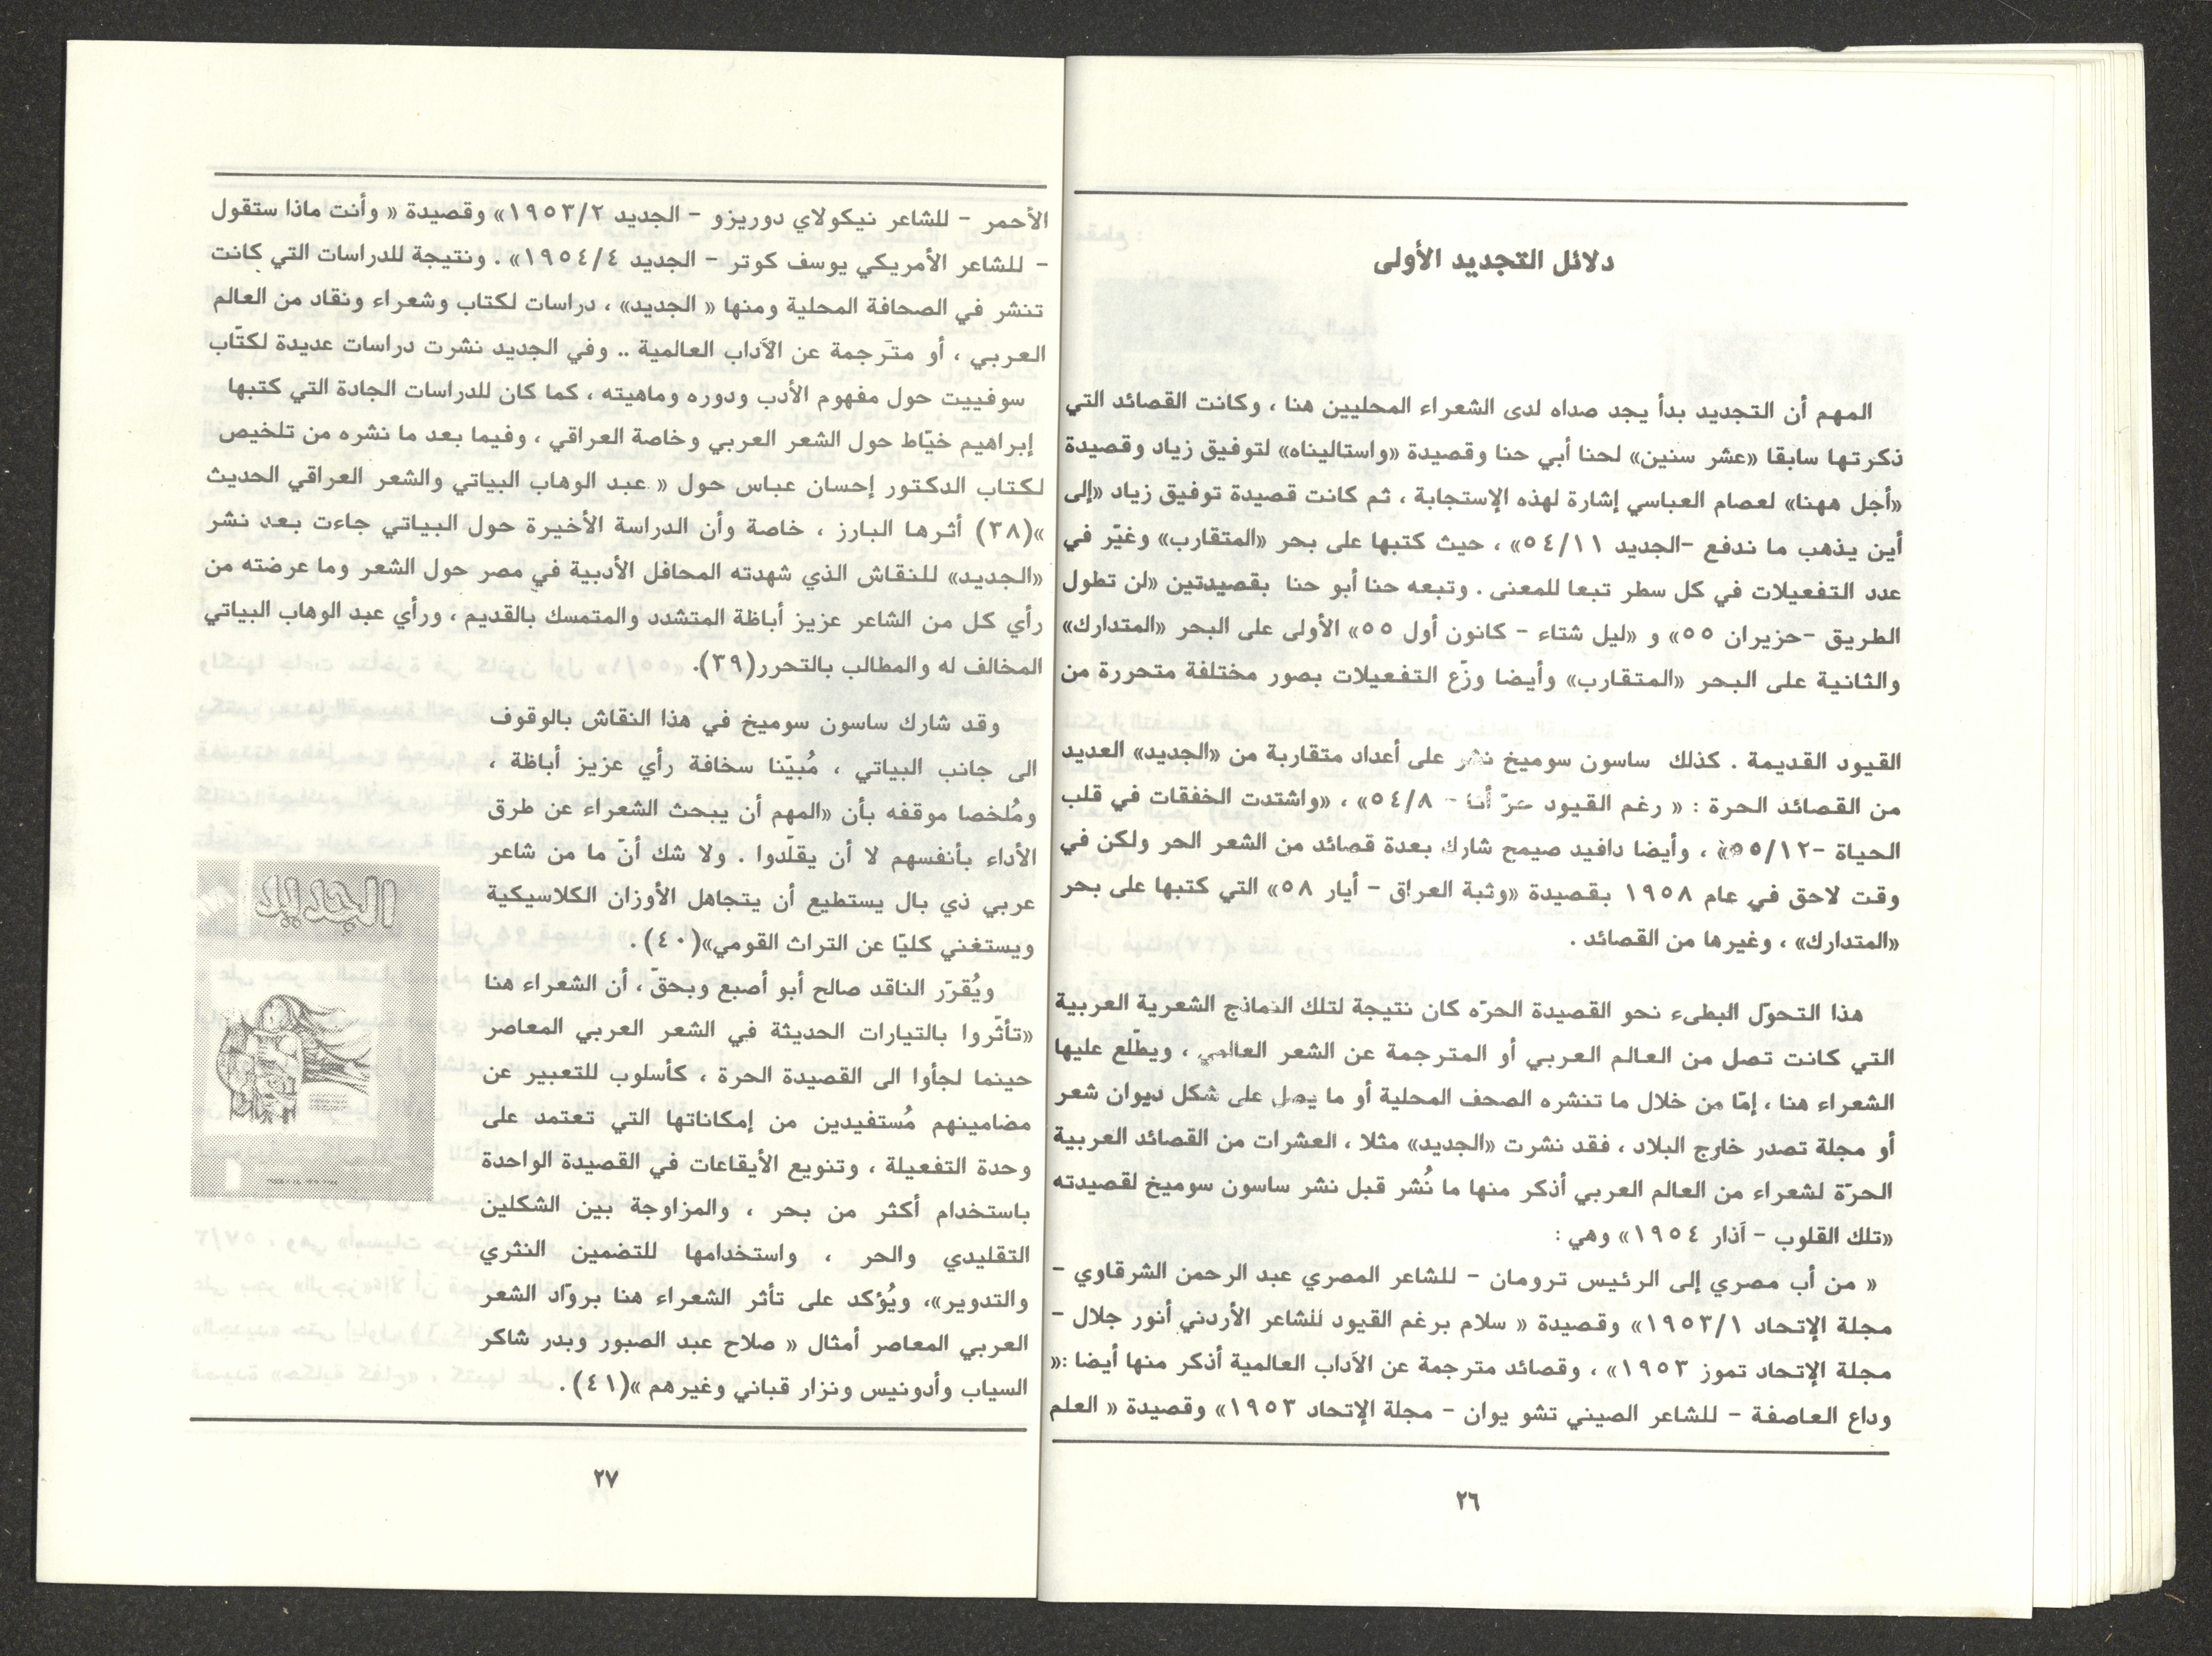 دلائل التجديد الأولى
المهم أن التجديد بدأ يجد صداه لدى الشعراء المحليين هنا ، وكانت القصائد التي
ذكرتها سابقا «عشر سنين» لحنا أبي حنا وقصيدة «واستاليناه» لتوفيق زياد وقصيدة
«أجل ههنا» لعصام العباسي إشارة لهذه الإستجابة ، ثم كانت قصيدة توفيق زياد «إلى
أين يذهب ما ندفع -الجديد ٥٤/١١» ، حيث كتبها على بحر «المتقارب» وغيّر في
عدد التفعيلات في كل سطر تبعا للمعنى . وتبعه حنا أبو حنا بقصيدتين «لن تطول
الطريق -حزيران ٥٥» و «ليل شتاء - كانون أول ٥٥» الأولى على البحر «المتدارك»
والثانية على البحر «المتقارب» وأيضا وزّع التفعيلات بصور مختلفة متحررة من
القيود القديمة . كذلك ساسون سوميخ نشر على أعداد متقاربة من «الجديد» العديد
من القصائد الحرة : « رغم القيود حرّ أنا - ٥٤/٨» ، «واشتدت الخفقات في قلب
الحياة -٥٥/١٢» ، وأيضا دافيد صيمح شارك بعدة قصائد من الشعر الحر ولكن في
وقت لاحق في عام ١٩٥٨ بقصيدة «وثبة العراق - أيار ٥٨» التي كتبها على بحر
«المتدارك» ، وغيرها من القصائد .
هذا التحوّل البطىء نحو القصيدة الحرّه كان نتيجة لتلك النماذج الشعرية العربية
التي كانت تصل من العالم العربي أو المترجمة عن الشعر العالمي ، ويطّلع عليها
الشعراء هنا ، إمّا من خلال ما تنشره الصحف المحلية أو ما يصل على شكل ديوان شعر
أو مجلة تصدر خارج البلاد ، فقد نشرت «الجديد» مثلا ، العشرات من القصائد العربية
الحرّة لشعراء من العالم العربي أذكر منها ما نُشر قبل نشر ساسون سوميخ لقصيدته
«تلك القلوب - آذار ١٩٥٤» وهي :
« من أب مصري إلى الرئيس ترومان - للشاعر المصري عبد الرحمن الشرقاوي -
مجلة الإتحاد ١٩٥٣/١» وقصيدة « سلام برغم القيود للشاعر الأردني أنور جلال -
مجلة الإتحاد تموز ١٩٥٣» ، وقصائد مترجمة عن الآداب العالمية أذكر منها أيضا :«
وداع العاصفة - للشاعر الصيني تشو يوان - مجلة الإتحاد ١٩٥٣» وقصيدة « العلم
٢٦
الأحمر - للشاعر نيكولاي دوريزو - الجديد ١٩٥٣/٢» وقصيدة « وأنت ماذا ستقول
- للشاعر الأمريكي يوسف كوتر - الجديد ١٩٥٤/٤» . ونتيجة للدراسات التي كانت
تنشر في الصحافة المحلية ومنها « الجديد» ، دراسات لكتاب وشعراء ونقاد من العالم
العربي ، أو مترجمة عن الآداب العالمية .. وفي الجديد نشرت دراسات عديدة لكتّاب
سوفييت حول مفهوم الأدب ودوره وماهيته ، كما كان للدراسات الجادة التي كتبها
إبراهيم خيّاط حول الشعر العربي وخاصة العراقي ، وفيما بعد ما نشره من تلخيص
لكتاب الدكتور إحسان عباس حول « عبد الوهاب البياتي والشعر العراقي الحديث
»(٣٨) أثرها البارز ، خاصة وأن الدراسة الأخيرة حول البياتي جاءت بعد نشر
«الجديد» للنقاش الذي شهدته المحافل الأدبية في مصر حول الشعر وما عرضته من
رأي كل من الشاعر عزيز أباظة المتشدد والمتمسك بالقديم ، ورأي عبد الوهاب البياتي
المخالف له والمطالب بالتحرر(٣٩).
وقد شارك ساسون سوميخ في هذا النقاش بالوقوف
الى جانب البياتي ، مُبيّنا سخافة رأي عزيز أباظة ،
ومُلخصا موقفه بأن «المهم أن يبحث الشعراء عن طرق
الأداء بأنفسهم لا أن يقلّدوا . ولا شك أنّ ما من شاعر
عربي ذي بال يستطيع أن يتجاهل الأوزان الكلاسيكية
ويستغني كليّا عن التراث القومي»(٤٠) .
ويُقرّر الناقد صالح أبو أصبع وبحقّ ، أن الشعراء هنا
«تأثّروا بالتيارات الحديثة في الشعر العربي المعاصر
حينما لجأوا الى القصيدة الحرة ، كأسلوب للتعبير عن
مضامينهم مُستفيدين من إمكاناتها التي تعتمد على
وحدة التفعيلة ، وتنويع الأيقاعات في القصيدة الواحدة
باستخدام أكثر من بحر ، والمزاوجة بين الشكلين
التقليدي والحر ، واستخدامها للتضمين النثري
والتدوير»، ويُؤكد على تأثر الشعراء هنا بروّاد الشعر
العربي المعاصر أمثال « صلاح عبد الصبور وبدر شاكر
السياب وأدونيس ونزار قباني وغيرهم »(٤١) .
الجديد
٢٧